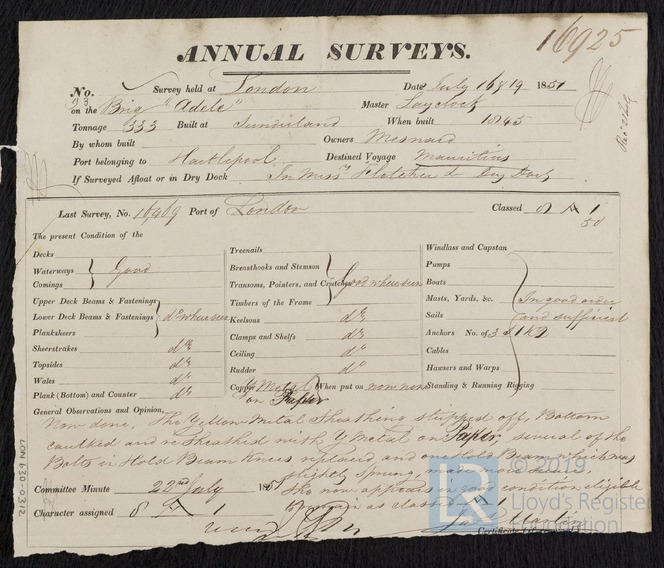 16925
ANNUAL SURVEYS.
No. Survey held at London Date July 16 & 19 1851
on the Brig "Adele" Master Laycock
Tonnage 333 Built at Sunderland When built 1845
By whom built Owners Mesnard
Port belonging to Hartlepool Destined Voyage Mauritius
If Surveyed Afloat or in Dry Dock In Messrs Fletcher & Dry Dock
Last Survey, No. 16909 Port of London Classed 8 A 1
50
The present Condition of the
Decks
Waterways
Comings
Good
Upper Deck Beams & Fastenings
Lower Deck Beams & Fastenings
Planksheers
do where seen
Sheerstrakes do
Topsides do
Wales do
Plank (Bottom) and Counter do
Treenails
Breasthooks and Stemson
Transoms, Pointers, and Crutches
Timbers of the Frame
Good where seen
Keelsons do
Clamps and Shelfs do
Ceiling do
Rudder do
Copper Y Metal When put on now new
on Paper
Windlass and Capstan
Pumps
Boats
Masts, Yards, &c.
Sails
Anchors No. of 3
Cables
Hawsers and Warps
Standing & Running Rigging
In good order
and sufficient
General Observations and Opinion,
Now done, The Yellow Metal Sheathing stripped off, Bottom
caulked and reSheathed with Y Metal on Paper, several of the
Bolts in Hold Beam Knees replaced, and one Hold Beam which was
slightly sprung,
She now appears in good condition eligible
to remain as classed A
Committee Minute 22nd July 1851
Character assigned 8 A 1
LON 630-0312
© 2019
Lloyd's Register
Foundation